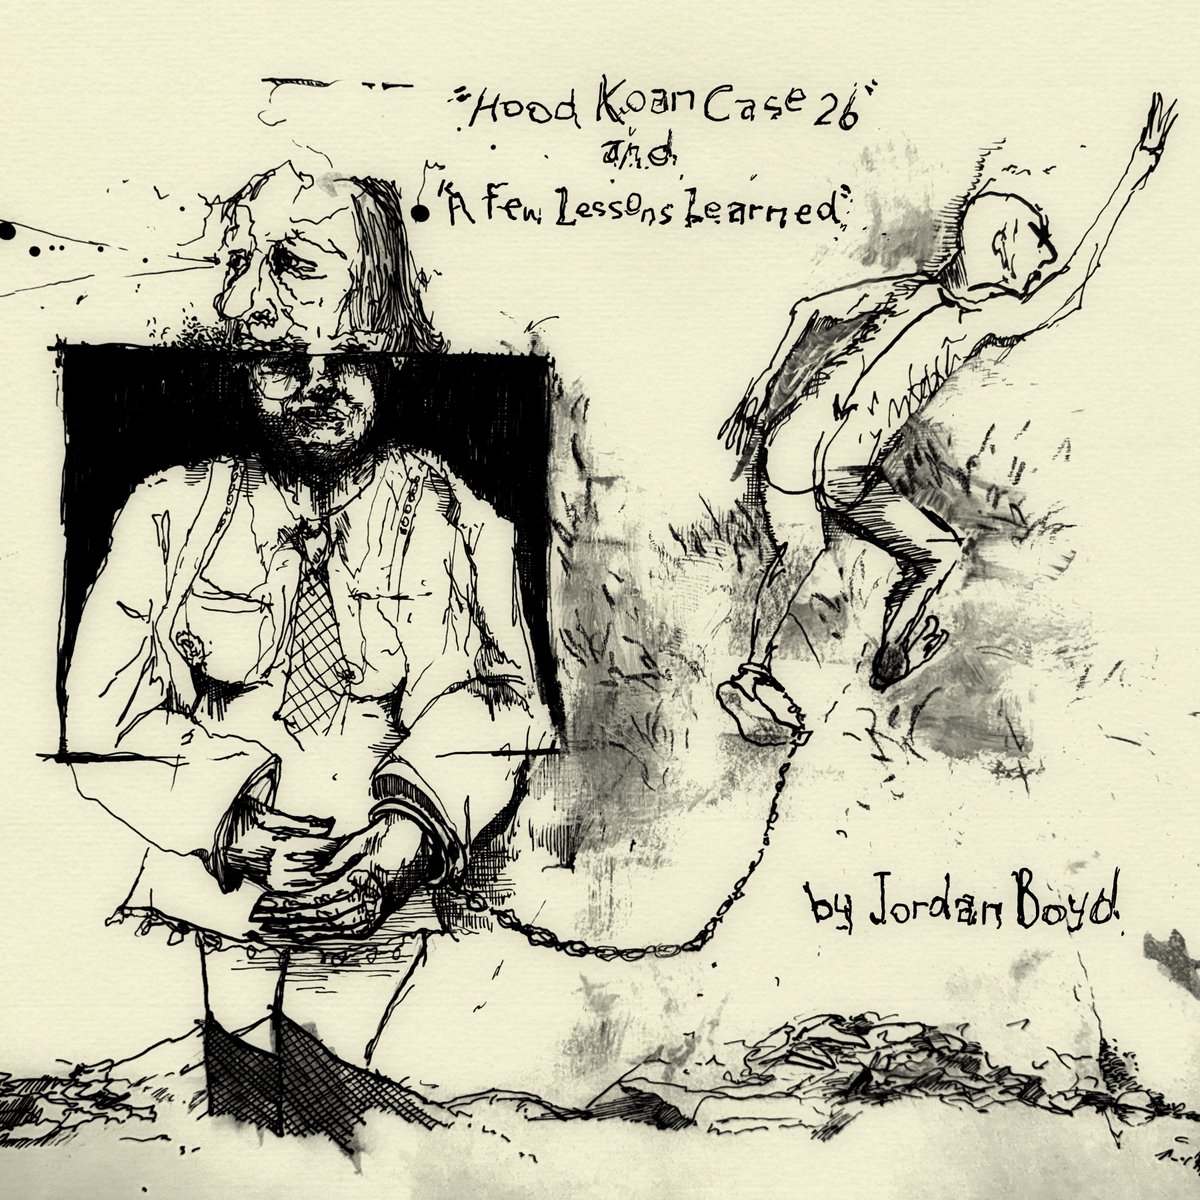 "Hood Koan Case 26"
and
"A Few Lessons Learned"
by Jordan Boyd